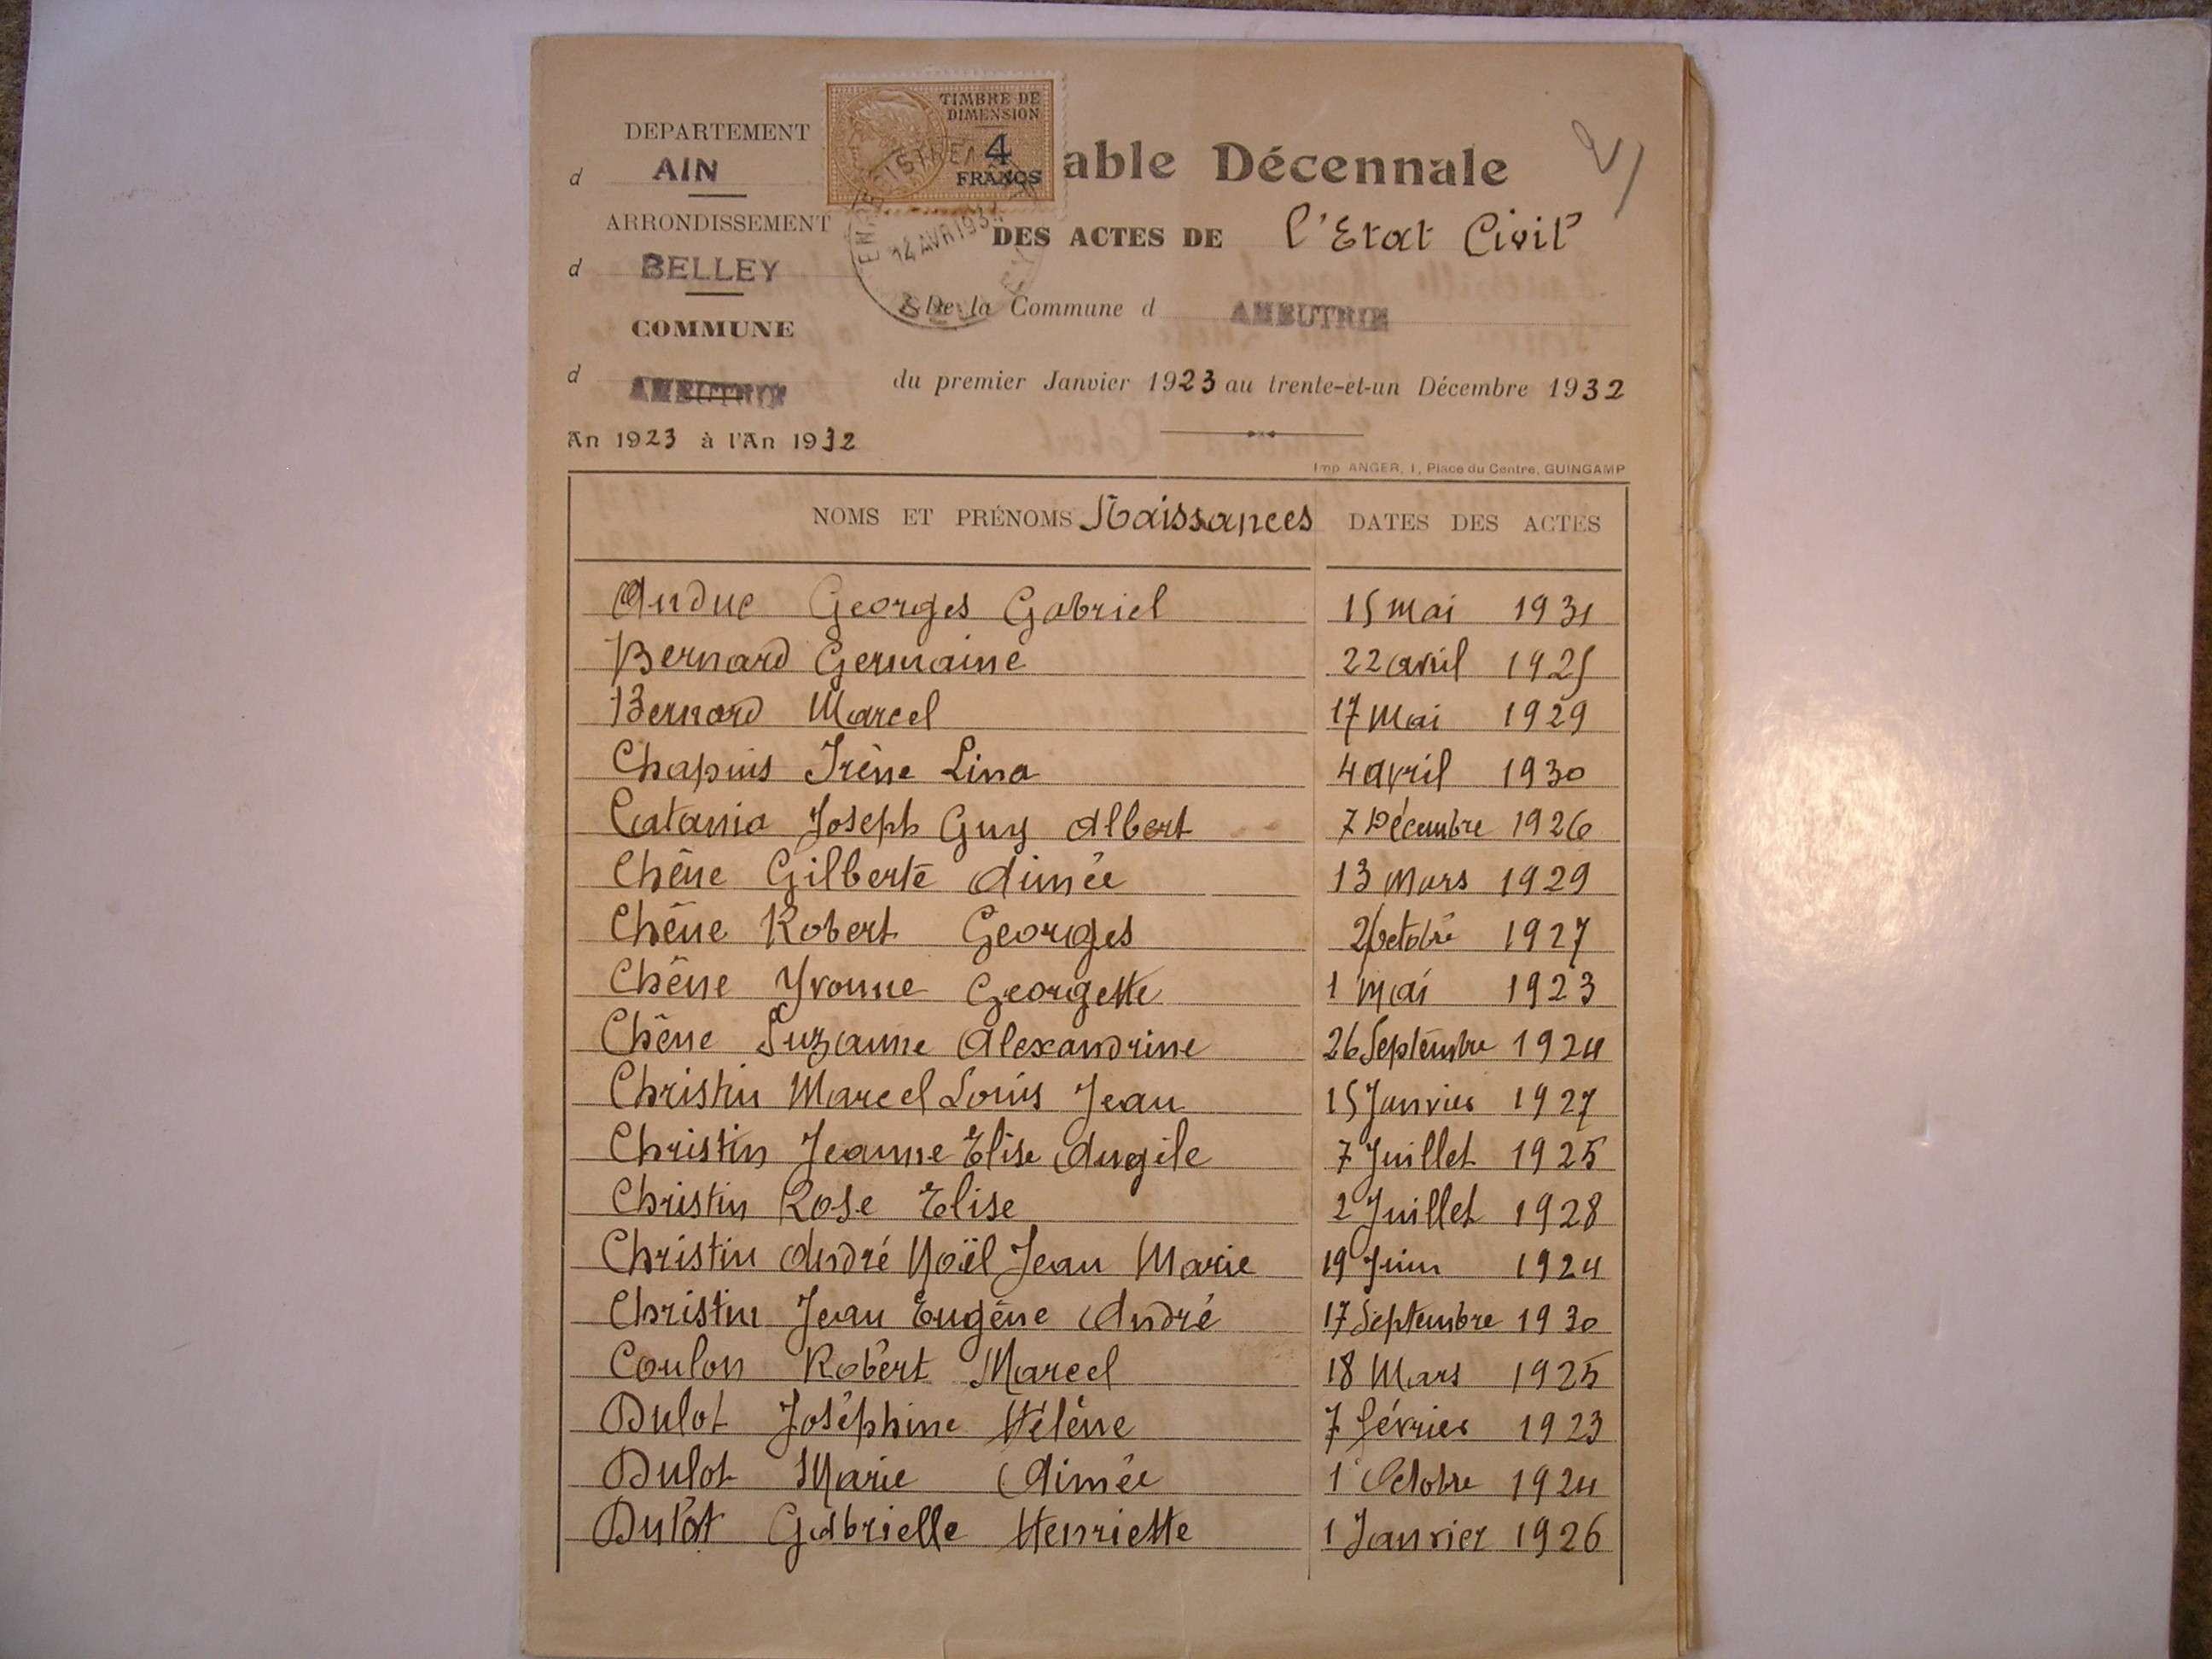 TIMBRE DE
DIMENSION
4
FRANCS
DEPARTEMENT
d AIN
able Décennale
ARRONDISSEMENT
DES ACTES DE l'Etat Civil
12 AVR 193
d BELLEY
De la Commune d AMBUTRIX
COMMUNE
d AMBUTRIX
du premier Janvier 1923 au trente-et-un Décembre 1932
An 1923 à l'An 1932
Imp. ANGER, 1, Place du Centre, GUINGAMP
NOMS ET PRÉNOMS Naissances DATES DES ACTES
Anduc Georges Gabriel 15 mai 1931
Bernard Germaine 22 avril 1925
Bernard Marcel 17 Mai 1929
Chapuis Irène Lina 4 avril 1930
Catania Joseph Guy Albert 7 Décembre 1926
Chêne Gilberte Aimée 13 Mars 1929
Chêne Robert Georges 2 octobre 1927
Chêne Yvonne Georgette 1 mai 1923
Chêne Suzanne Alexandrine 26 Septembre 1924
Christin Marcel Louis Jean 15 Janvier 1927
Christin Jeanne Elise Angèle 7 Juillet 1925
Christin Rose Elise 2 Juillet 1928
Christin André Noël Jean Marie 19 Juin 1924
Christin Jean Eugène André 17 Septembre 1930
Coulon Robert Marcel 18 Mars 1925
Dulot Joséphine Hélène 7 février 1923
Dulot Marie Aimée 1 Octobre 1924
Dulot Gabrielle Henriette 1 Janvier 1926